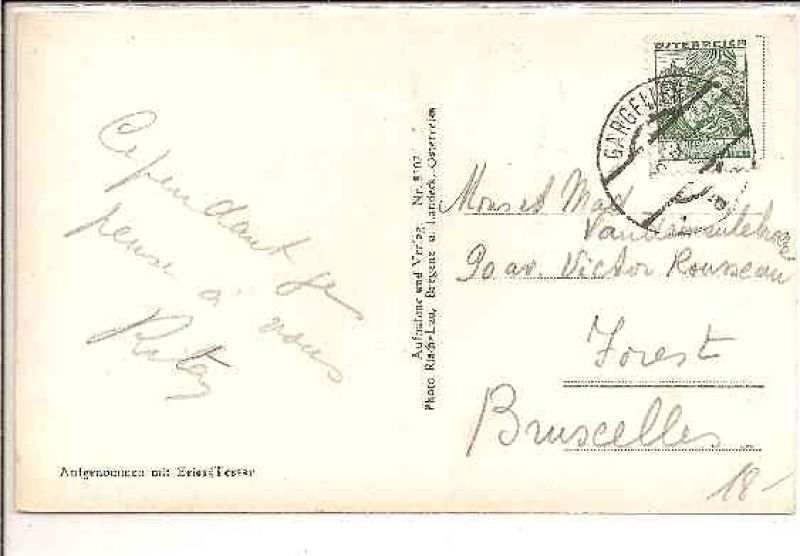 Cependant je
pense à vous
Ritay
Aufgenommen mit Zeiss-Tessar
Aufnahme und Verlag Nr. 8107
Photo Risch-Lau, Bregenz u. Landeck, Österreich
ÖSTERREICH
GARGELLEN
Mons et Mad
90 av. Victor Rousseau
Forest
Bruscelles
18-